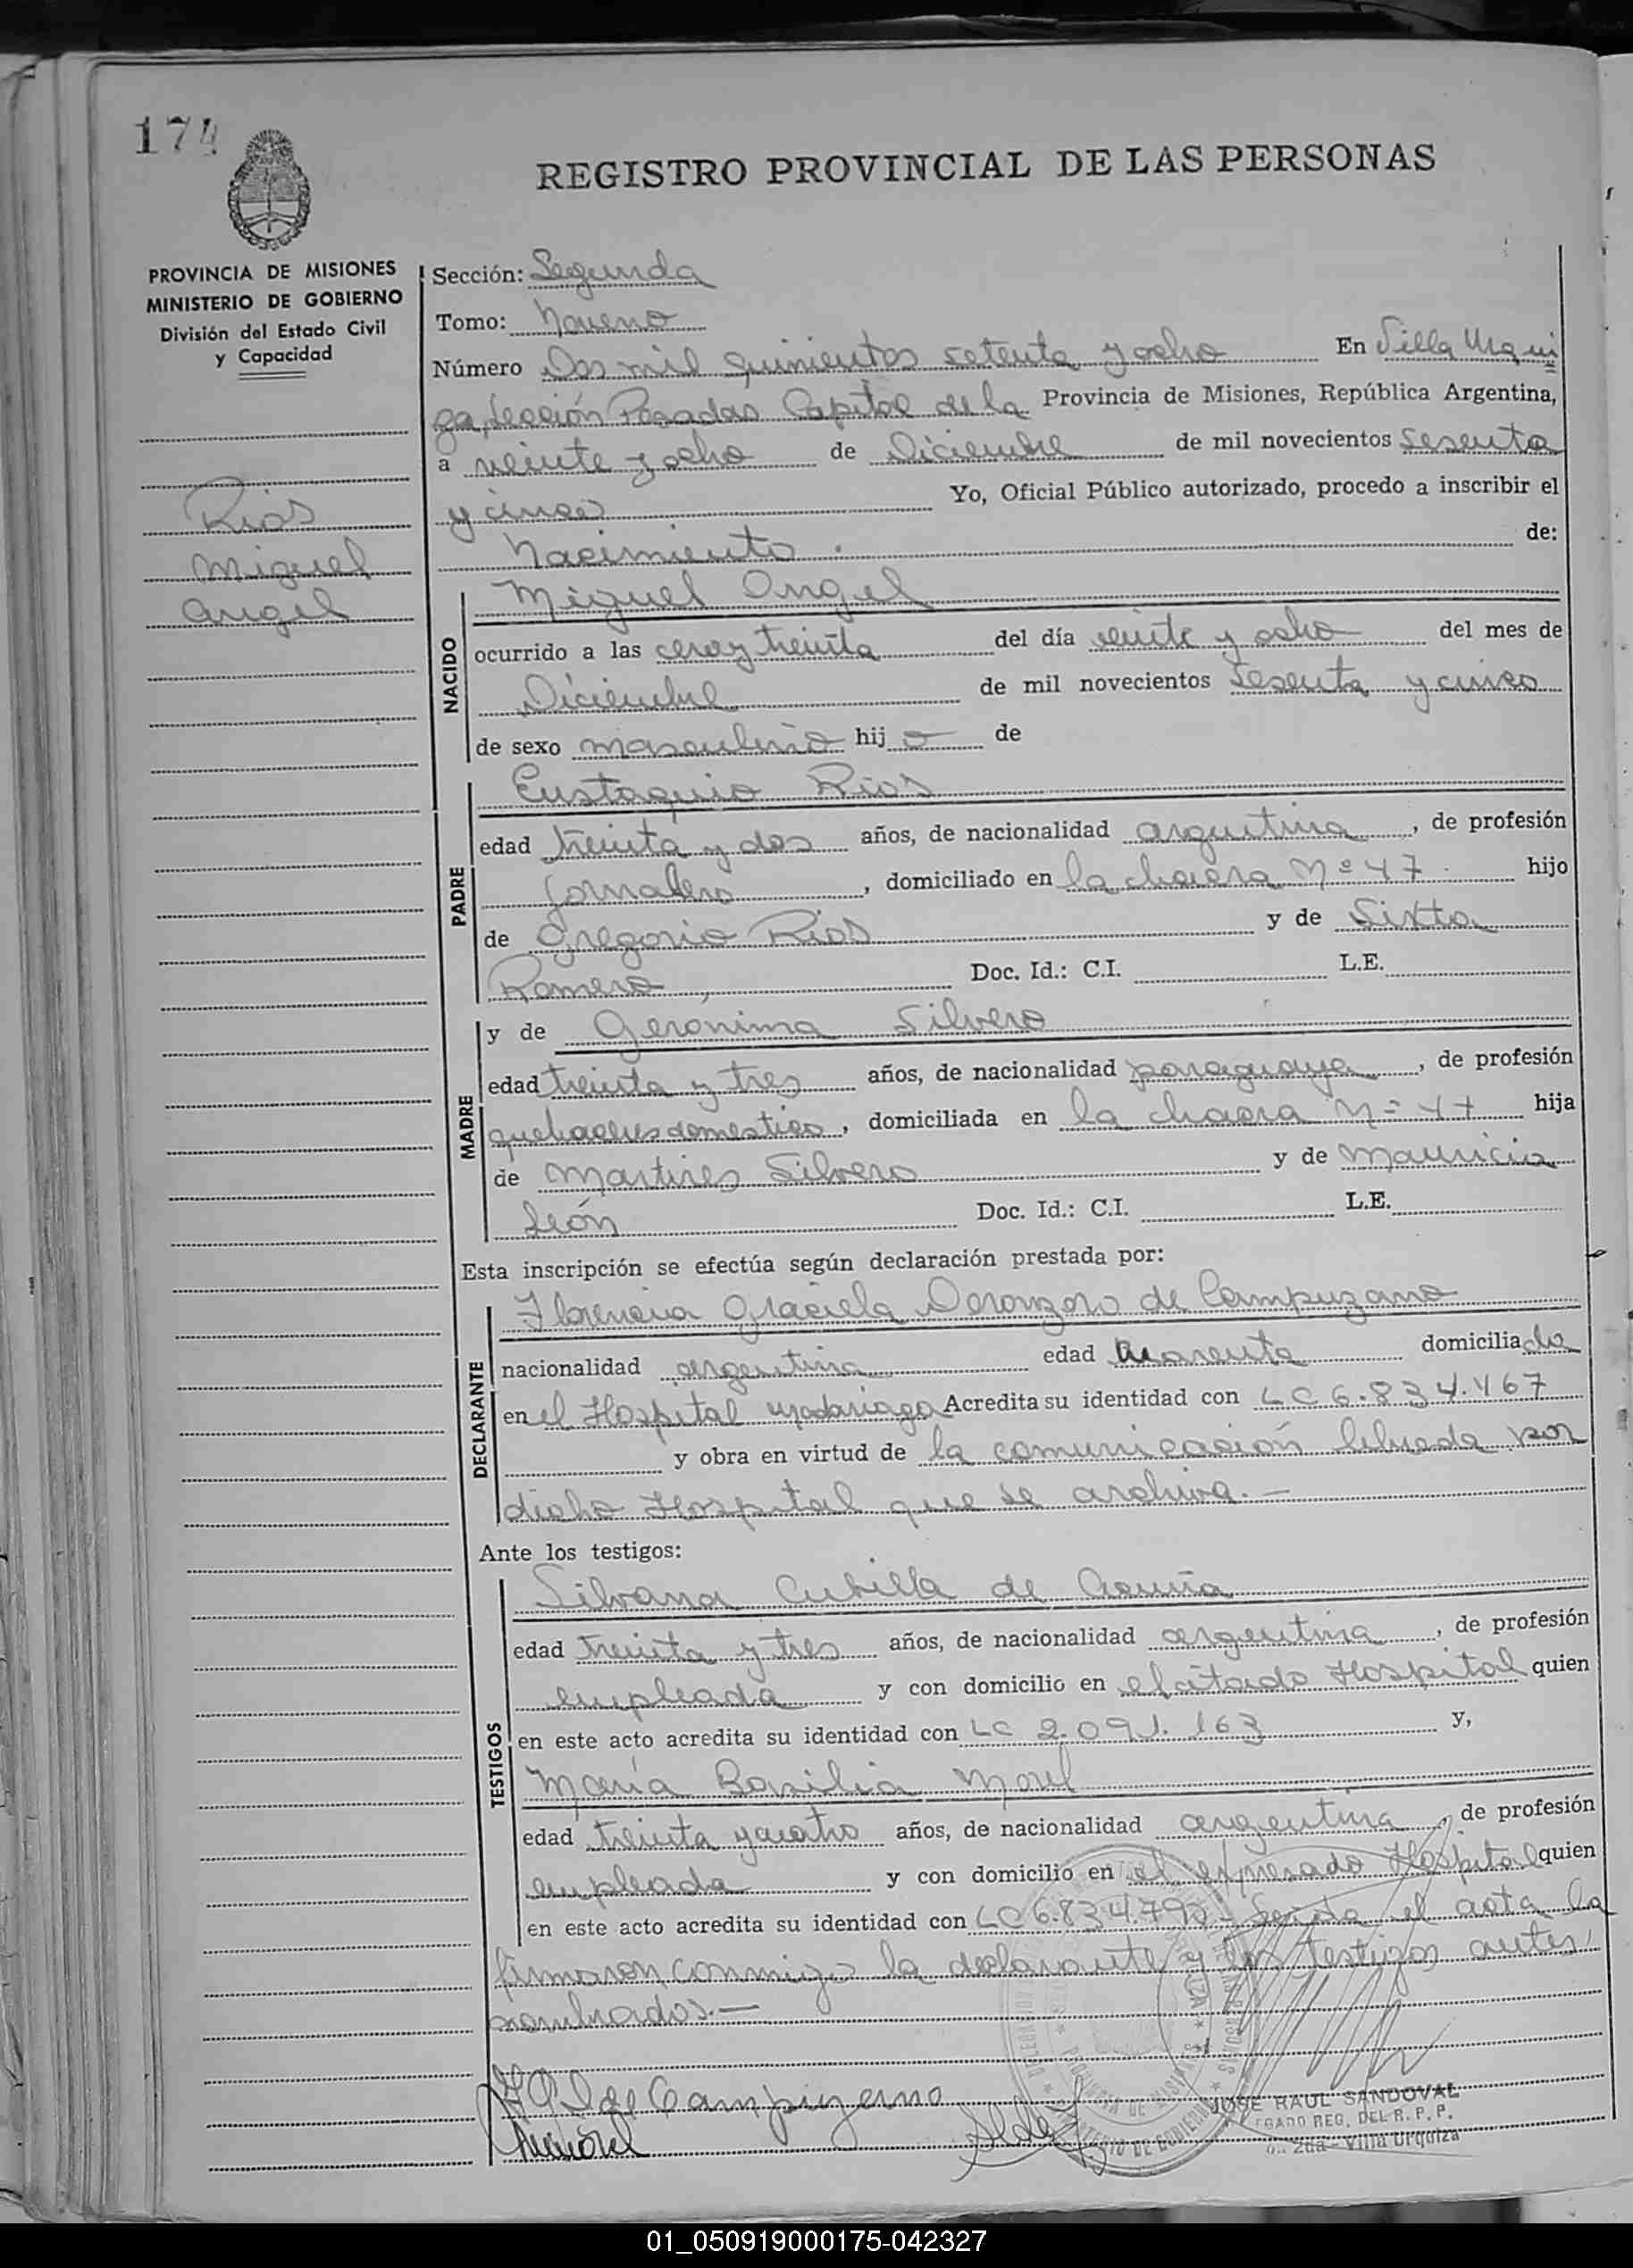 174
REGISTRO PROVINCIAL DE LAS PERSONAS
PROVINCIA DE MISIONES
MINISTERIO DE GOBIERNO
División del Estado Civil
y Capacidad
Rios
Miguel
Angel
Sección: Segunda
Tomo: Noveno
Número Dos mil quinientos setenta y ocho En Villa Urqui
za, Sección Posadas Capital de la Provincia de Misiones, República Argentina,
a veinte y ocho de Diciembre de mil novecientos sesenta
y cinco Yo, Oficial Público autorizado, procedo a inscribir el
Nacimiento. de:
NACIDO
Miguel Angel
ocurrido a las cero y treinta del día veinte y ocho del mes de
Diciembre de mil novecientos sesenta y cinco
de sexo masculino hijo de
PADRE
Eustaquio Rios
edad treinta y dos años, de nacionalidad argentina, de profesión
Jornalero, domiciliado en la chacra Nº 47 hijo
de Gregorio Rios y de Sixta
Romero, Doc. Id.: C.I. L.E.
MADRE
y de Gerónima Silvero
edad treinta y tres años, de nacionalidad paraguaya, de profesión
quehaceres domestico, domiciliada en la chacra Nº 47 hija
de Martires Silvero y de Mauricia
León Doc. Id.: C.I. L.E.
Esta inscripción se efectúa según declaración prestada por:
DECLARANTE
Florencia Graciela de Campuzano
nacionalidad argentina edad cuarenta domiciliada
en el Hospital Madariaga Acredita su identidad con LC 6.834.467
y obra en virtud de la comunicación librada por
dicho Hospital que se archiva.-
Ante los testigos:
TESTIGOS
Silvana Cubilla de Acuña
edad treinta y tres años, de nacionalidad argentina, de profesión
empleada y con domicilio en el citado Hospital quien
en este acto acredita su identidad con LC 2.091.163 y,
María Basilia Morel
edad treinta y cuatro años, de nacionalidad argentina, de profesión
empleada y con domicilio en el expresado Hospital quien
en este acto acredita su identidad con LC 6.834.792 - Leída el acta la
firmaron conmigo la declarante y los testigos antes
nombrados.-
de Campuzano
JOSE RAUL SANDOVAL
REG. DEL R. P. P.
2da - Villa Urquiza
01_050919000175-042327